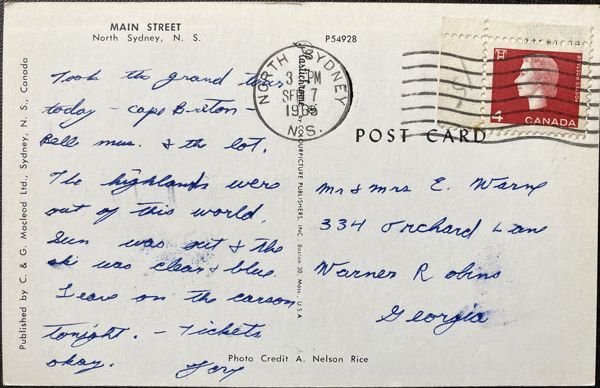 MAIN STREET
North Sydney, N. S.
P54928
Took the grand tour
today - cape Breton -
Bell mus. & the lot.
The highlands were
out of this world.
Sun was out & the
ski was clear & blue.
Leave on the carson
tonight. - Tickets
okay.
Published by C. & G. Macleod Ltd., Sydney, N. S., Canada
Plastichrome
COLOURPICTURE PUBLISHERS, INC. Boston 30, Mass. U.S.A.
NORTH SYDNEY
3 PM
SEP 7
1965
N.S.
4
CANADA
POST CARD
Mr & Mrs E. Warne
334 Orchard Lane
Warner Robins
Georgia
Photo Credit A. Nelson Rice